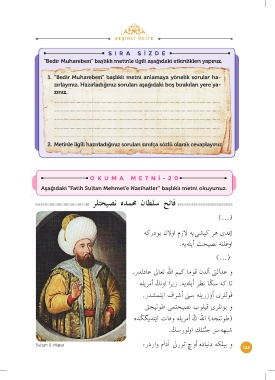 BEŞİNCİ ÜNİTE
SIRA SİZDE
"Bedir Muharebesi" başlıklı metinle ilgili aşağıdaki etkinlikleri yapınız.
1. "Bedir Muharebesi" başlıklı metni anlamaya yönelik sorular ha-
zırlayınız. Hazırladığınız soruları aşağıdaki boş bırakılan yere ya-
zınız.
2. Metinle ilgili hazırladığınız soruları sınıfça sözlü olarak cevaplayınız.
OKUMA METNİ-20
Aşağıdaki "Fatih Sultan Mehmet'e Nasihatler" başlıklı metni okuyunuz.
فاتح سلطان محمده نصيحتلر
(...)
إمدى هر كيشىيه لازم اولان بودركه
اوغلنه نصيحت أيلەيه.
(...)
و عدالتى ألدن قوما كيم الله تعالى عادلدر.
تا كه سكا نظر أيلەيه. زيرا اونك أمريله
قوللرى اوزرينه سنى أشرف ايتمشدر.
و بونلرى قيلوب نصيحتمى طوتيجق
(طوتنجه) الله ك أمريله وفات ايتديكگده
شبهەسز جنّتلك اولورسك.
و بيلكه دنياده اوچ تورلى آدام واردر:
II. Murat
123